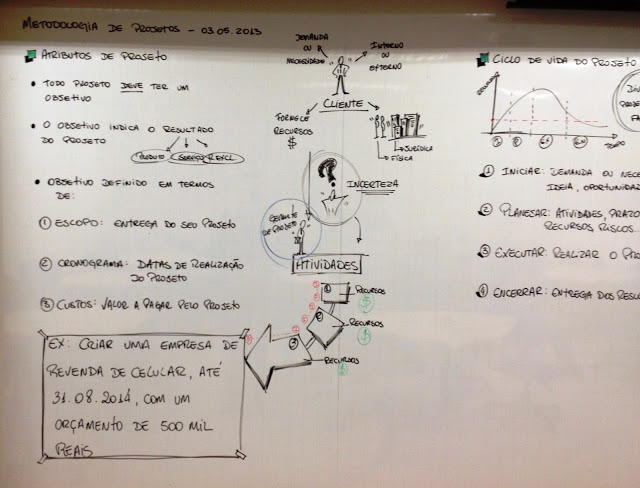 METODOLOGIA DE PROJETOS - 03.05.2013
ATRIBUTOS DE PROJETO
• TODO PROJETO DEVE TER UM
OBJETIVO
• O OBJETIVO INDICA O RESULTADO
DO PROJETO
PRODUTO
SERVIÇO
• OBJETIVO DEFINIDO EM TERMOS
DE:
① ESCOPO: ENTREGA DO SEU PROJETO
② CRONOGRAMA: DATAS DE REALIZAÇÃO
DO PROJETO
③ CUSTOS: VALOR A PAGAR PELO PROJETO
EX: CRIAR UMA EMPRESA DE
REVENDA DE CELULAR, ATÉ
31.08.2014, COM UM
ORÇAMENTO DE 500 MIL
REAIS
DEMANDA
OU
NECESSIDADE
INTERNO
OU
EXTERNO
CLIENTE
FORNECE
RECURSOS
$
JURÍDICA
FÍSICA
?
INCERTEZA
GERENTE
DE PROJETO
ATIVIDADES
① RECURSOS
$
② RECURSOS
$
③ RECURSOS
$
CICLO DE VIDA DO PROJETO
TEMPO
① INICIAR: DEMANDA OU NECE
IDEIA, OPORTUNIDA
② PLANEJAR: ATIVIDADES, PRAZO
RECURSOS, RISCOS...
③ EXECUTAR: REALIZAR O PRO
④ ENCERRAR: ENTREGA DOS RESU